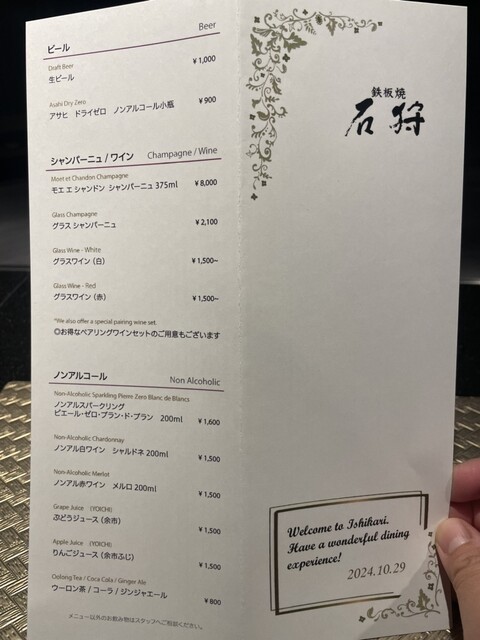 ビール Beer
Draft Beer
生ビール ¥1,000
Asahi Dry Zero
アサヒ ドライゼロ ノンアルコール小瓶 ¥900
シャンパーニュ / ワイン Champagne / Wine
Moet et Chandon Champagne
モエ エ シャンドン シャンパーニュ 375ml ¥8,000
Glass Champagne
グラス シャンパーニュ ¥2,100
Glass Wine - White
グラスワイン (白) ¥1,500~
Glass Wine - Red
グラスワイン (赤) ¥1,500~
*We also offer a special pairing wine set.
◎お得なペアリングワインセットのご用意もございます
ノンアルコール Non Alcoholic
Non-Alcoholic Sparkling Pierre Zero Blanc de Blancs
ノンアルスパークリング
ピエール・ゼロ・ブラン・ド・ブラン 200ml ¥1,600
Non-Alcoholic Chardonnay
ノンアル白ワイン シャルドネ 200ml ¥1,500
Non-Alcoholic Merlot
ノンアル赤ワイン メルロ 200ml ¥1,500
Grape Juice (YOICHI)
ぶどうジュース (余市) ¥1,500
Apple Juice (YOICHI)
りんごジュース (余市ふじ) ¥1,500
Oolong Tea / Coca Cola / Ginger Ale
ウーロン茶 / コーラ / ジンジャエール ¥800
メニュー以外のお飲み物はスタッフへご相談ください。
鉄板焼
石狩
Welcome to Ishikari.
Have a wonderful dining
experience!
2024.10.29